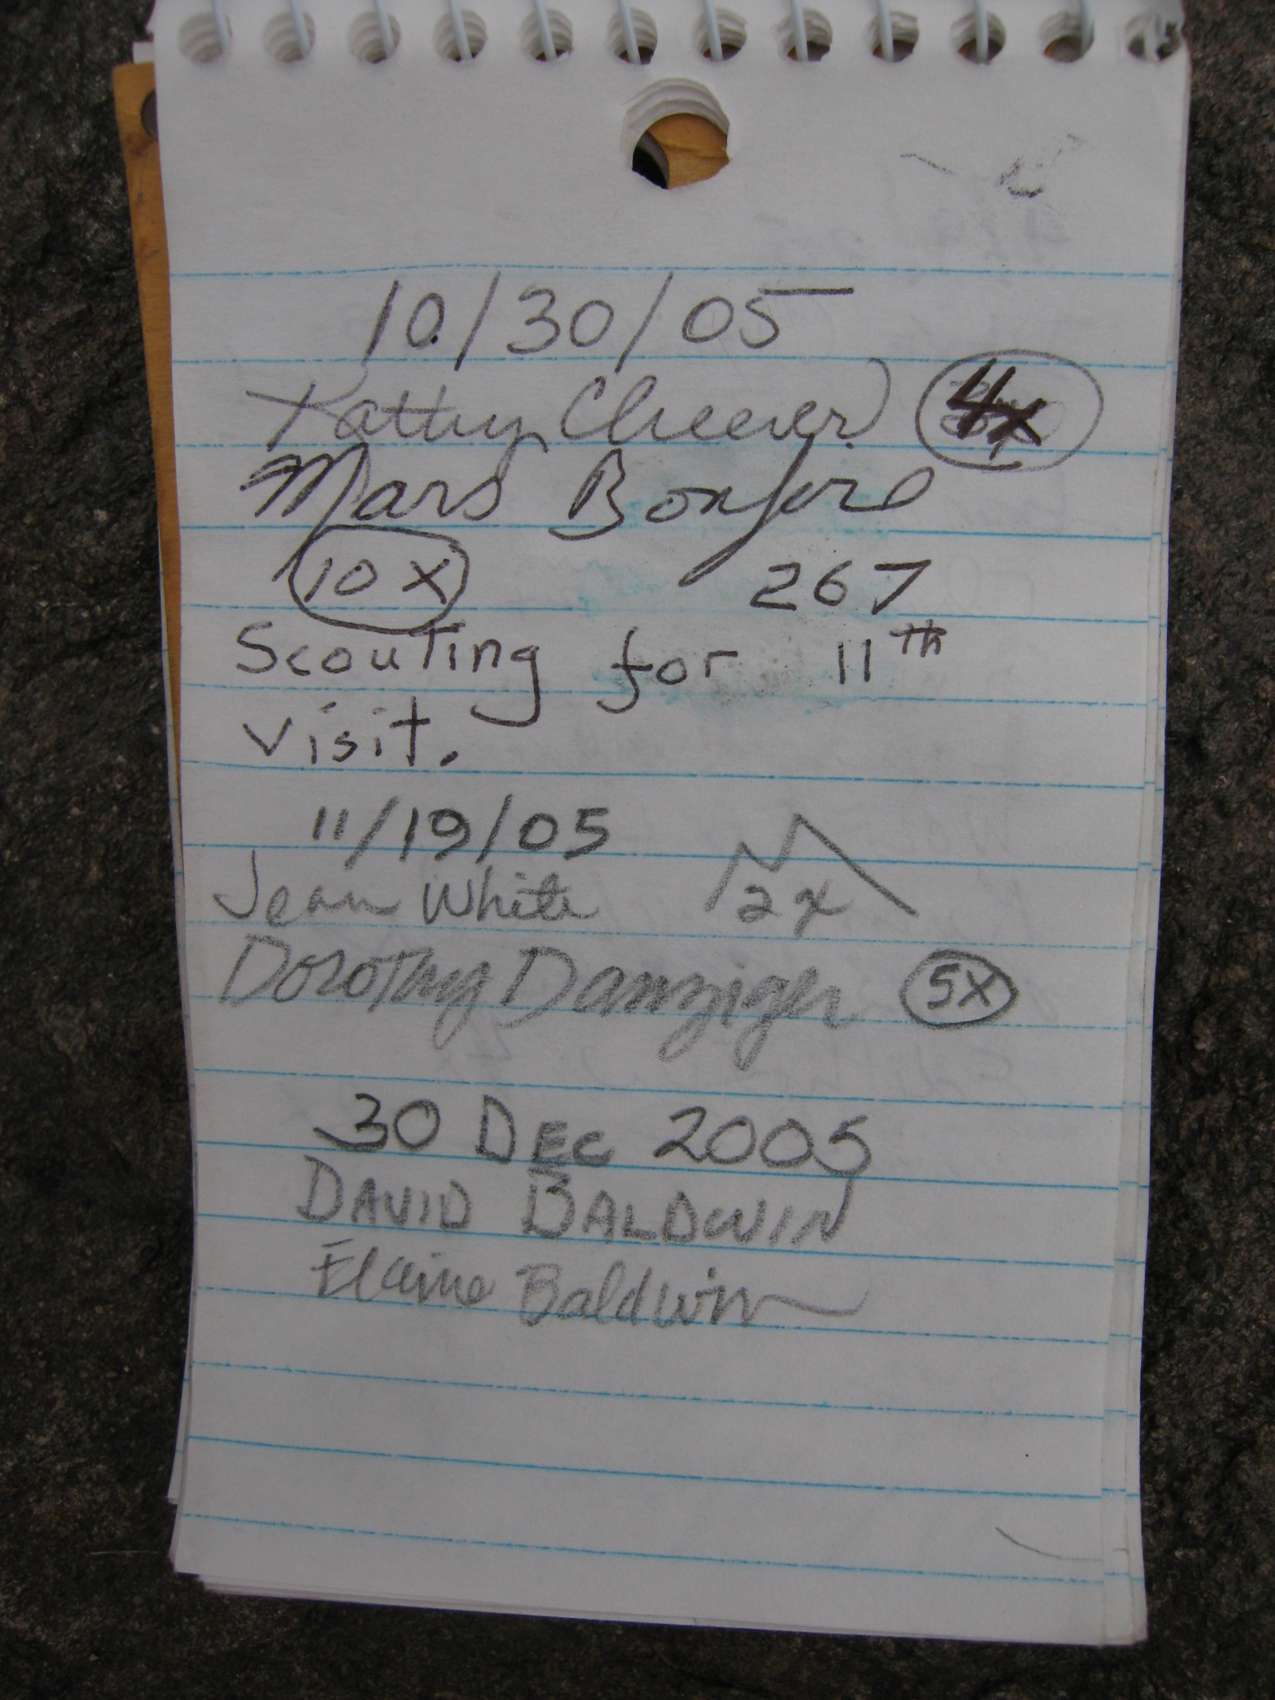 10/30/05
Kathy Cheever 4x
Mars Bonfire
10x 267
Scouting for 11th
visit.
11/19/05
Jean White 2x
Dorothy Danziger 5x
30 DEC 2005
DAVID BALDWIN
Elaine Baldwin